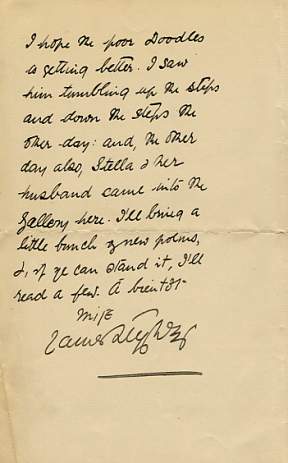 I hope the poor Doodles
is getting better. I saw
him tumbling up the steps
and down the steps the
other day: and, the other
day also, Stella & her
husband came into the
Gallery here. I'll bring a
little bunch of new poems,
&, if ye can stand it, I'll
read a few. À bientôt-
Mise
James Stephens